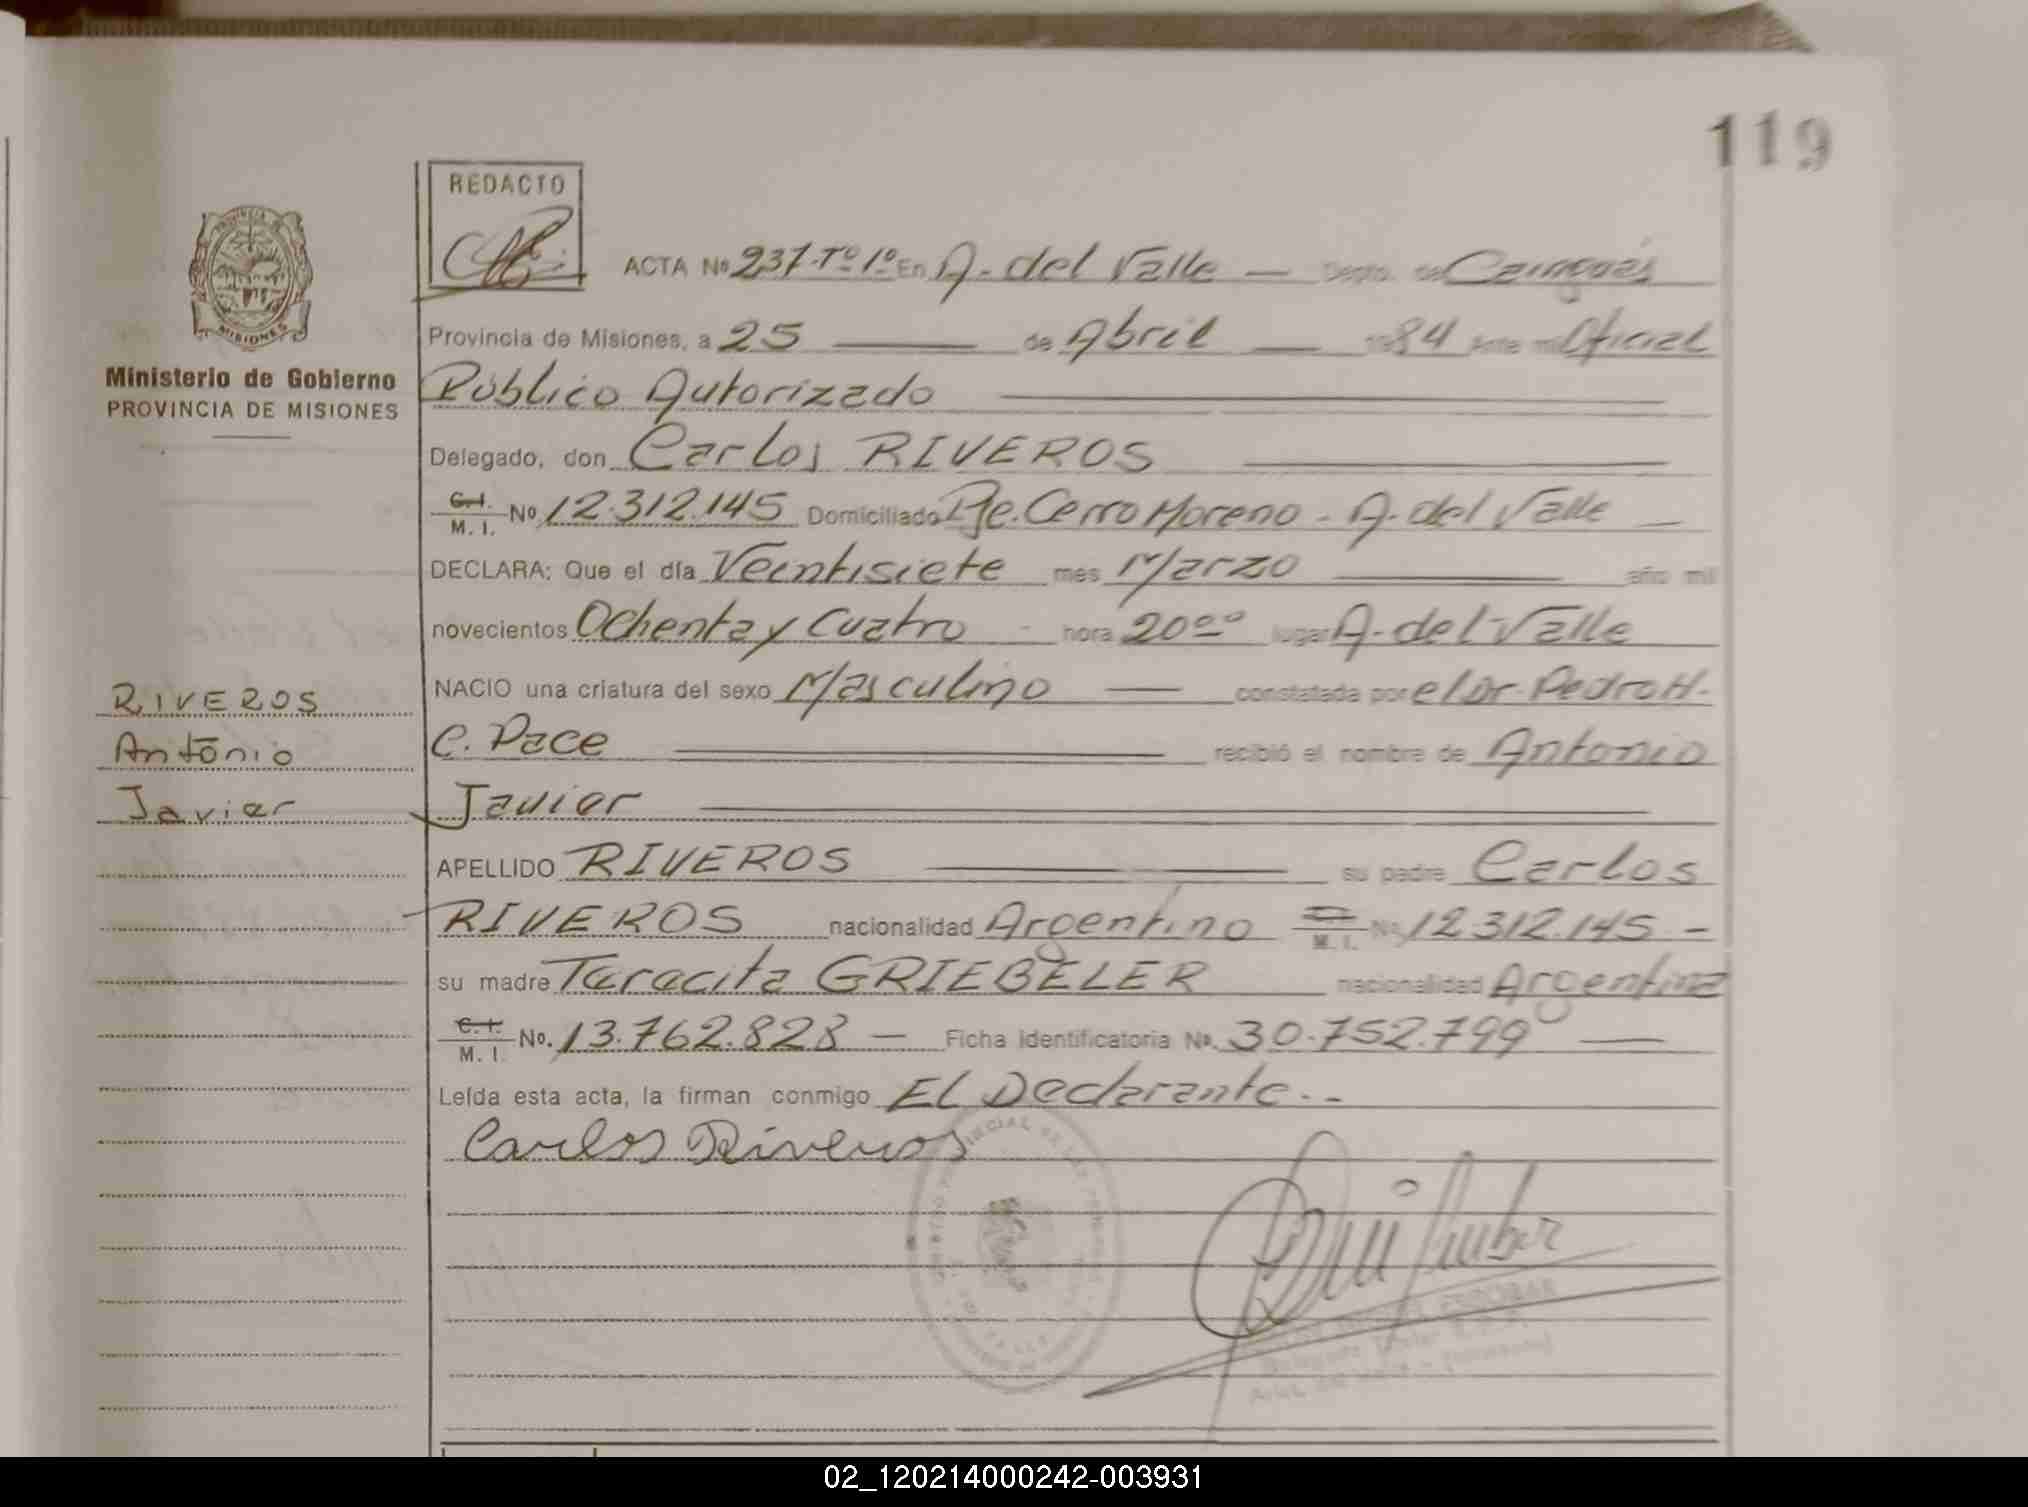 119
REDACTO
ACTA Nº 237-Tº 1º En A. del Valle — Depto. de Cainguás
Provincia de Misiones, a 25 — de Abril — 1984 Ante mi Oficial
Ministerio de Gobierno
PROVINCIA DE MISIONES
Público Autorizado
Delegado, don Carlos RIVEROS
C.I. M. I. Nº 12.312.145 Domiciliado Pje. Cerro Moreno - A. del Valle —
DECLARA: Que el día Veintisiete mes Marzo — año mil
novecientos Ochenta y Cuatro - hora 20ºº lugar A. del Valle
NACIO una criatura del sexo Masculino — constatada por el Dr. Pedro H.
C. Pace — recibió el nombre de Antonio
Javier
RIVEROS
António
Javier
APELLIDO RIVEROS — su padre Carlos
RIVEROS nacionalidad Argentino M. I. Nº 12.312.145 -
su madre Taracita GRIEBELER nacionalidad Argentina
C. I. M. I. No. 13.762.828 — Ficha Identificatoria Nº. 30.752.799 —
Leída esta acta, la firman conmigo El Declarante.-
Carlos Riveros
ESCOBAR
02_120214000242-003931